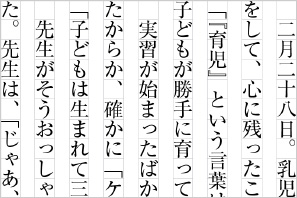 二月二十八日。乳児
をして、心に残ったこ
「『育児』という言葉は
子どもが勝手に育って
実習が始まったばか
たからか、確かに「ケ
「子どもは生まれて三
先生がそうおっしゃ
た。先生は、「じゃあ、